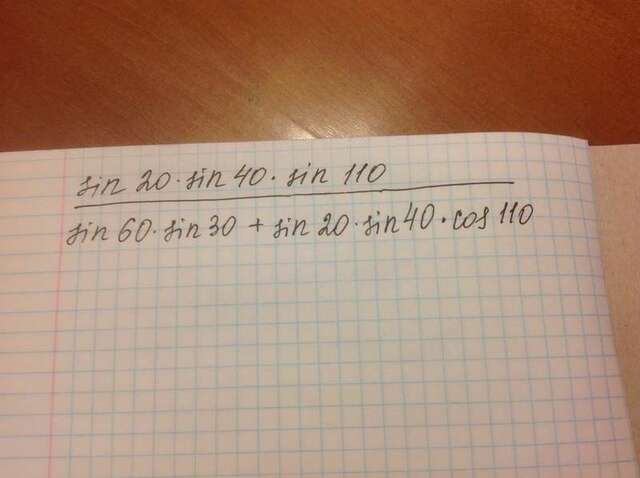 sin 20 · sin 40 · sin 110
sin 60 · sin 30 + sin 20 · sin 40 · cos 110